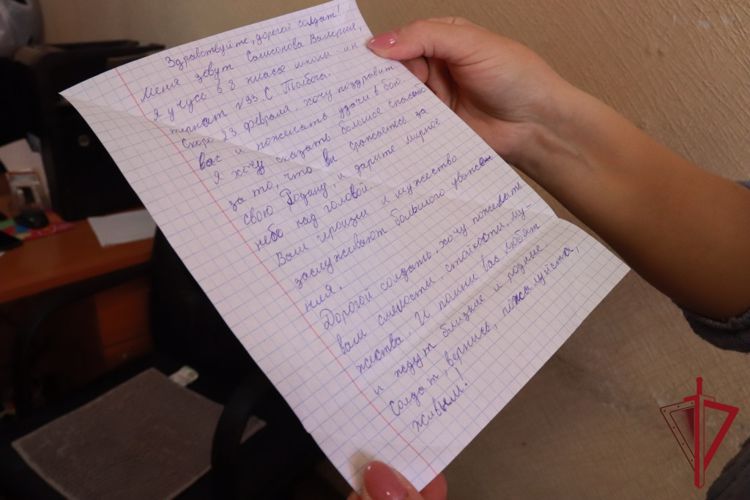 Здравствуйте, дорогой солдат!
Меня зовут Самсонова Валерия,
я учусь в 8 классе школы ин
тернат №33 С. Толбага.
Скоро 23 февраля, хочу поздравить
вас и пожелать удачи в бою.
Я хочу сказать большое спасибо
за то, что вы сражаетесь за
свою Родину, и дарите мирное
небо над головой.
Ваш героизм и мужество
заслуживают большого уваже
ния.
Дорогой солдат, хочу пожелать
вам смелости, стойкости, му-
жества. И помни вас любят
и ждут близкие и родные.
Солдат, вернись, пожалуйста,
живым!